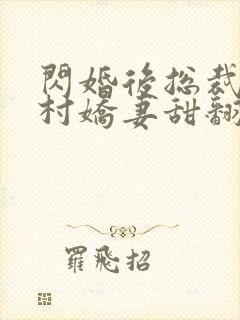 閃婚後總裁
村嬌妻甜翻
羅飛招